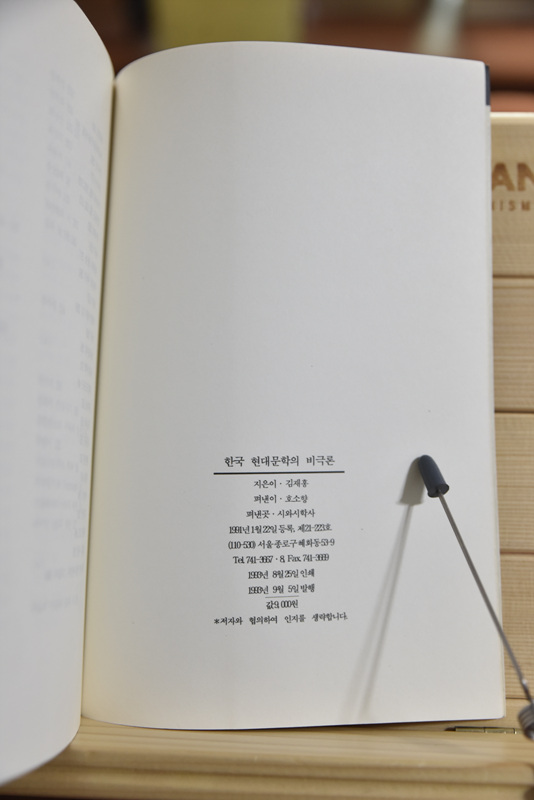 한국 현대문학의 비극론
지은이 · 김재홍
펴낸이 · 호소향
펴낸곳 · 시와시학사
1991년 1월 22일 등록, 제21-223호
(110-530) 서울·종로구 혜화동 53-9
Tel. 741-3667 · 8, Fax. 741-3669
1993년 8월 25일 인쇄
1993년 9월 5일 발행
값:9,000원
*저자와 협의하여 인지를 생략합니다.
AN
ISM